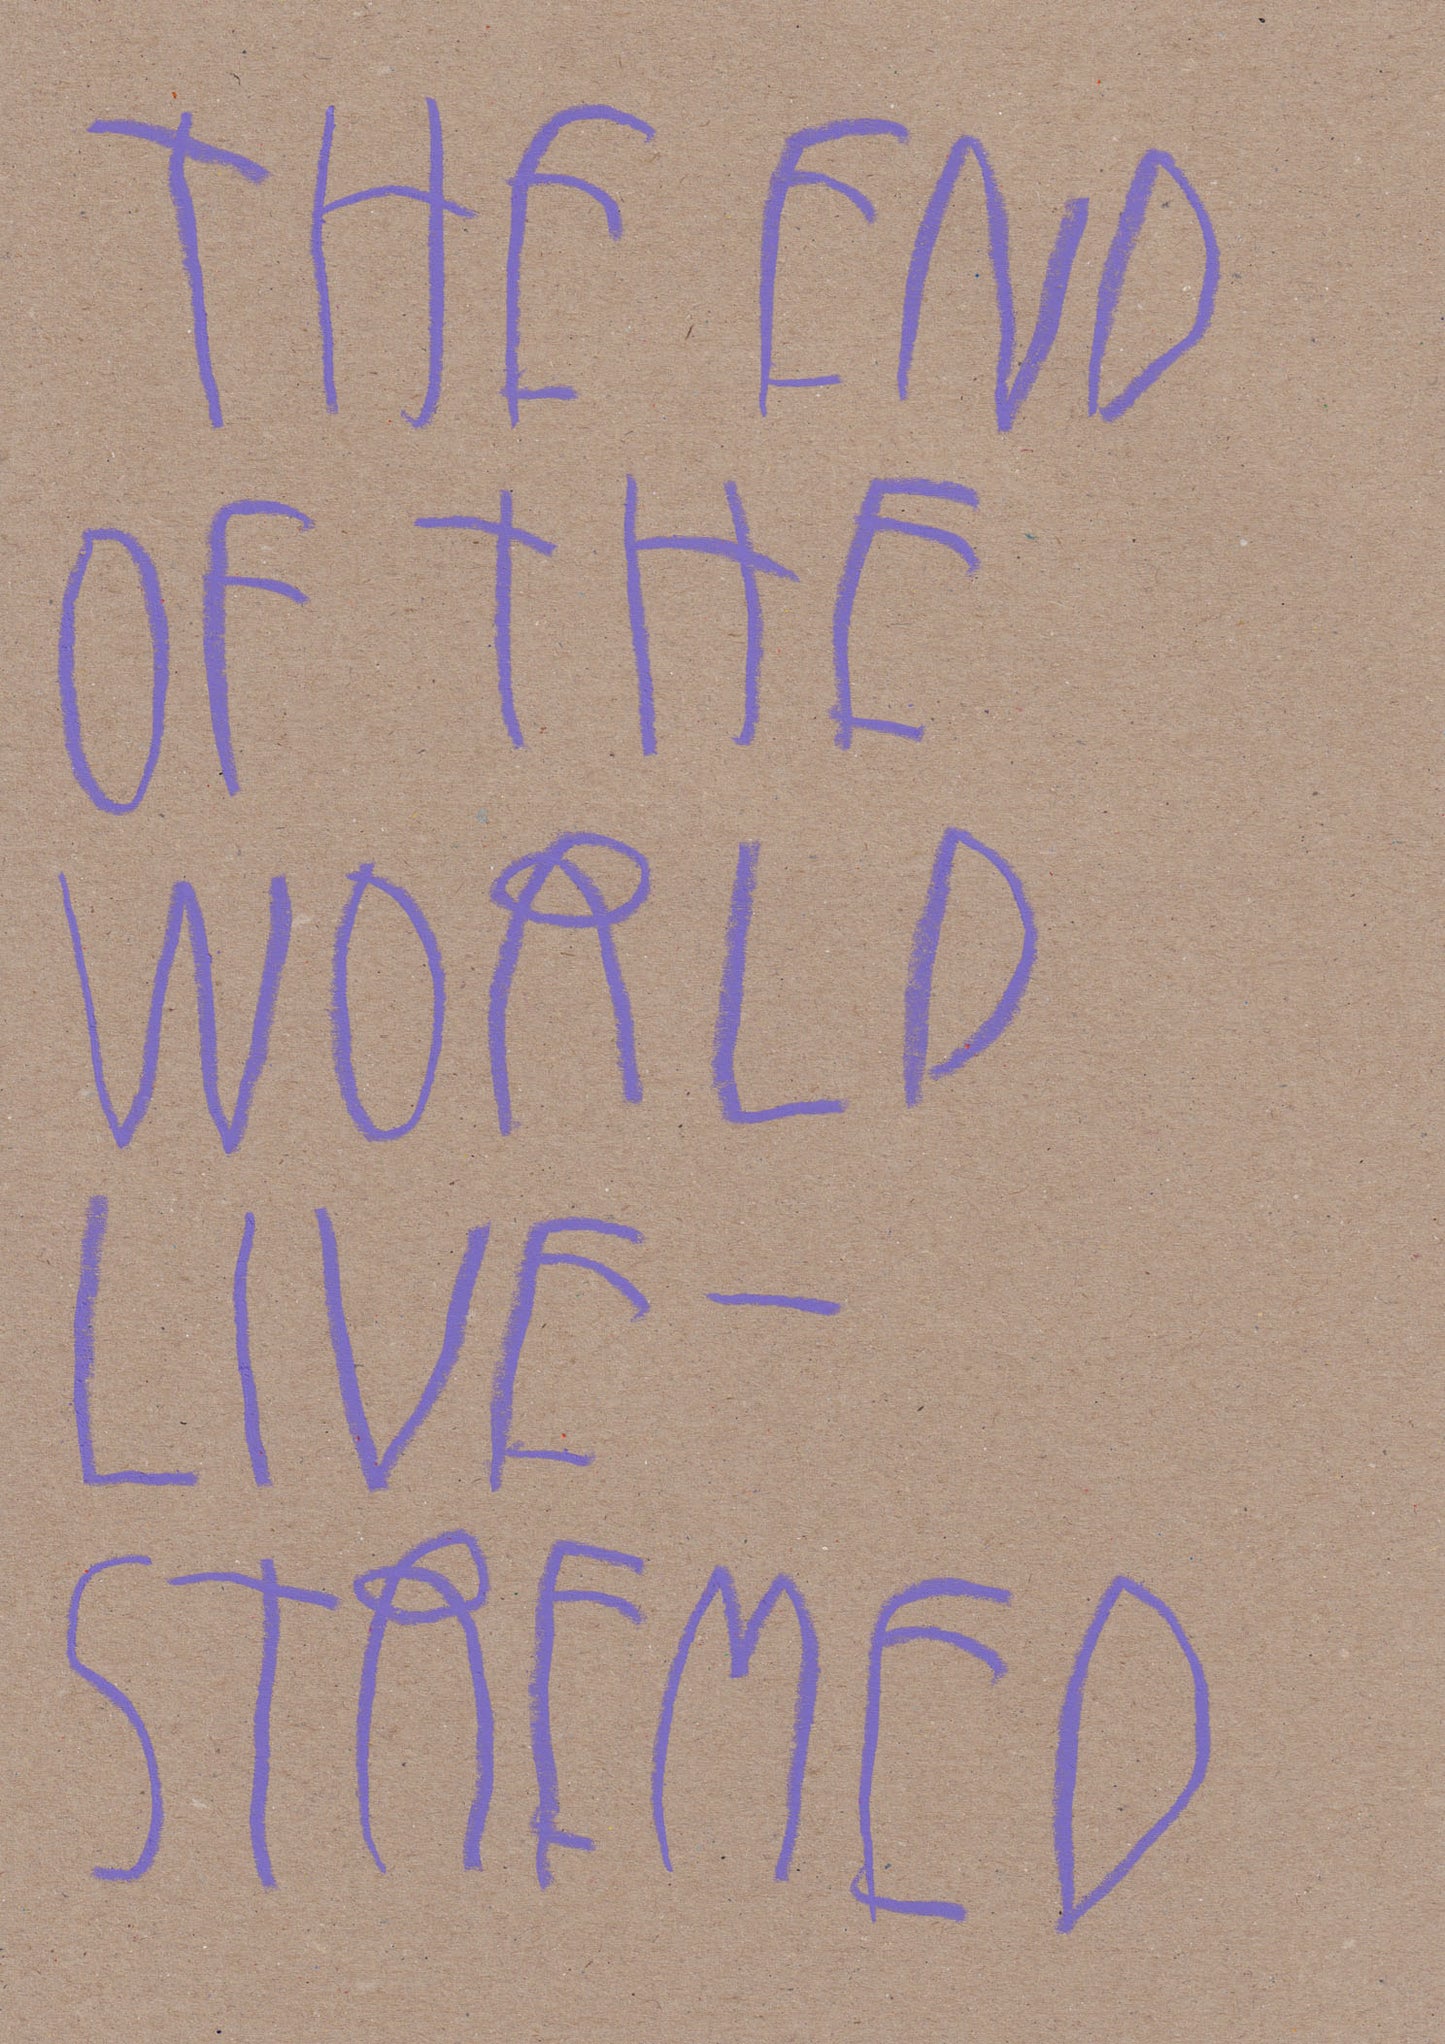 THE END
OF THE
WORLD
LIVE-
STREMED